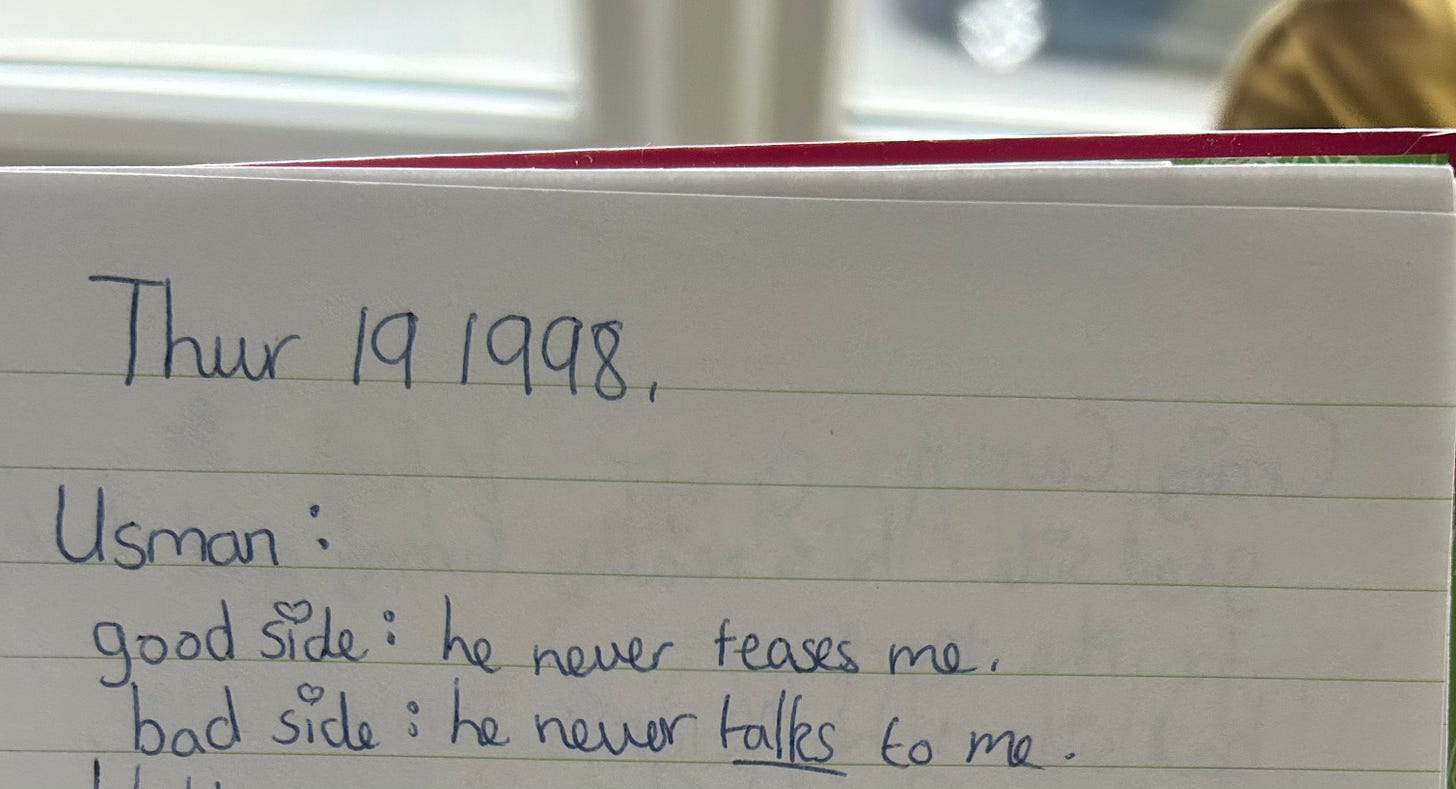 Thur 19 1998,
Usman :
good side : he never teases me.
bad side : he never talks to me.